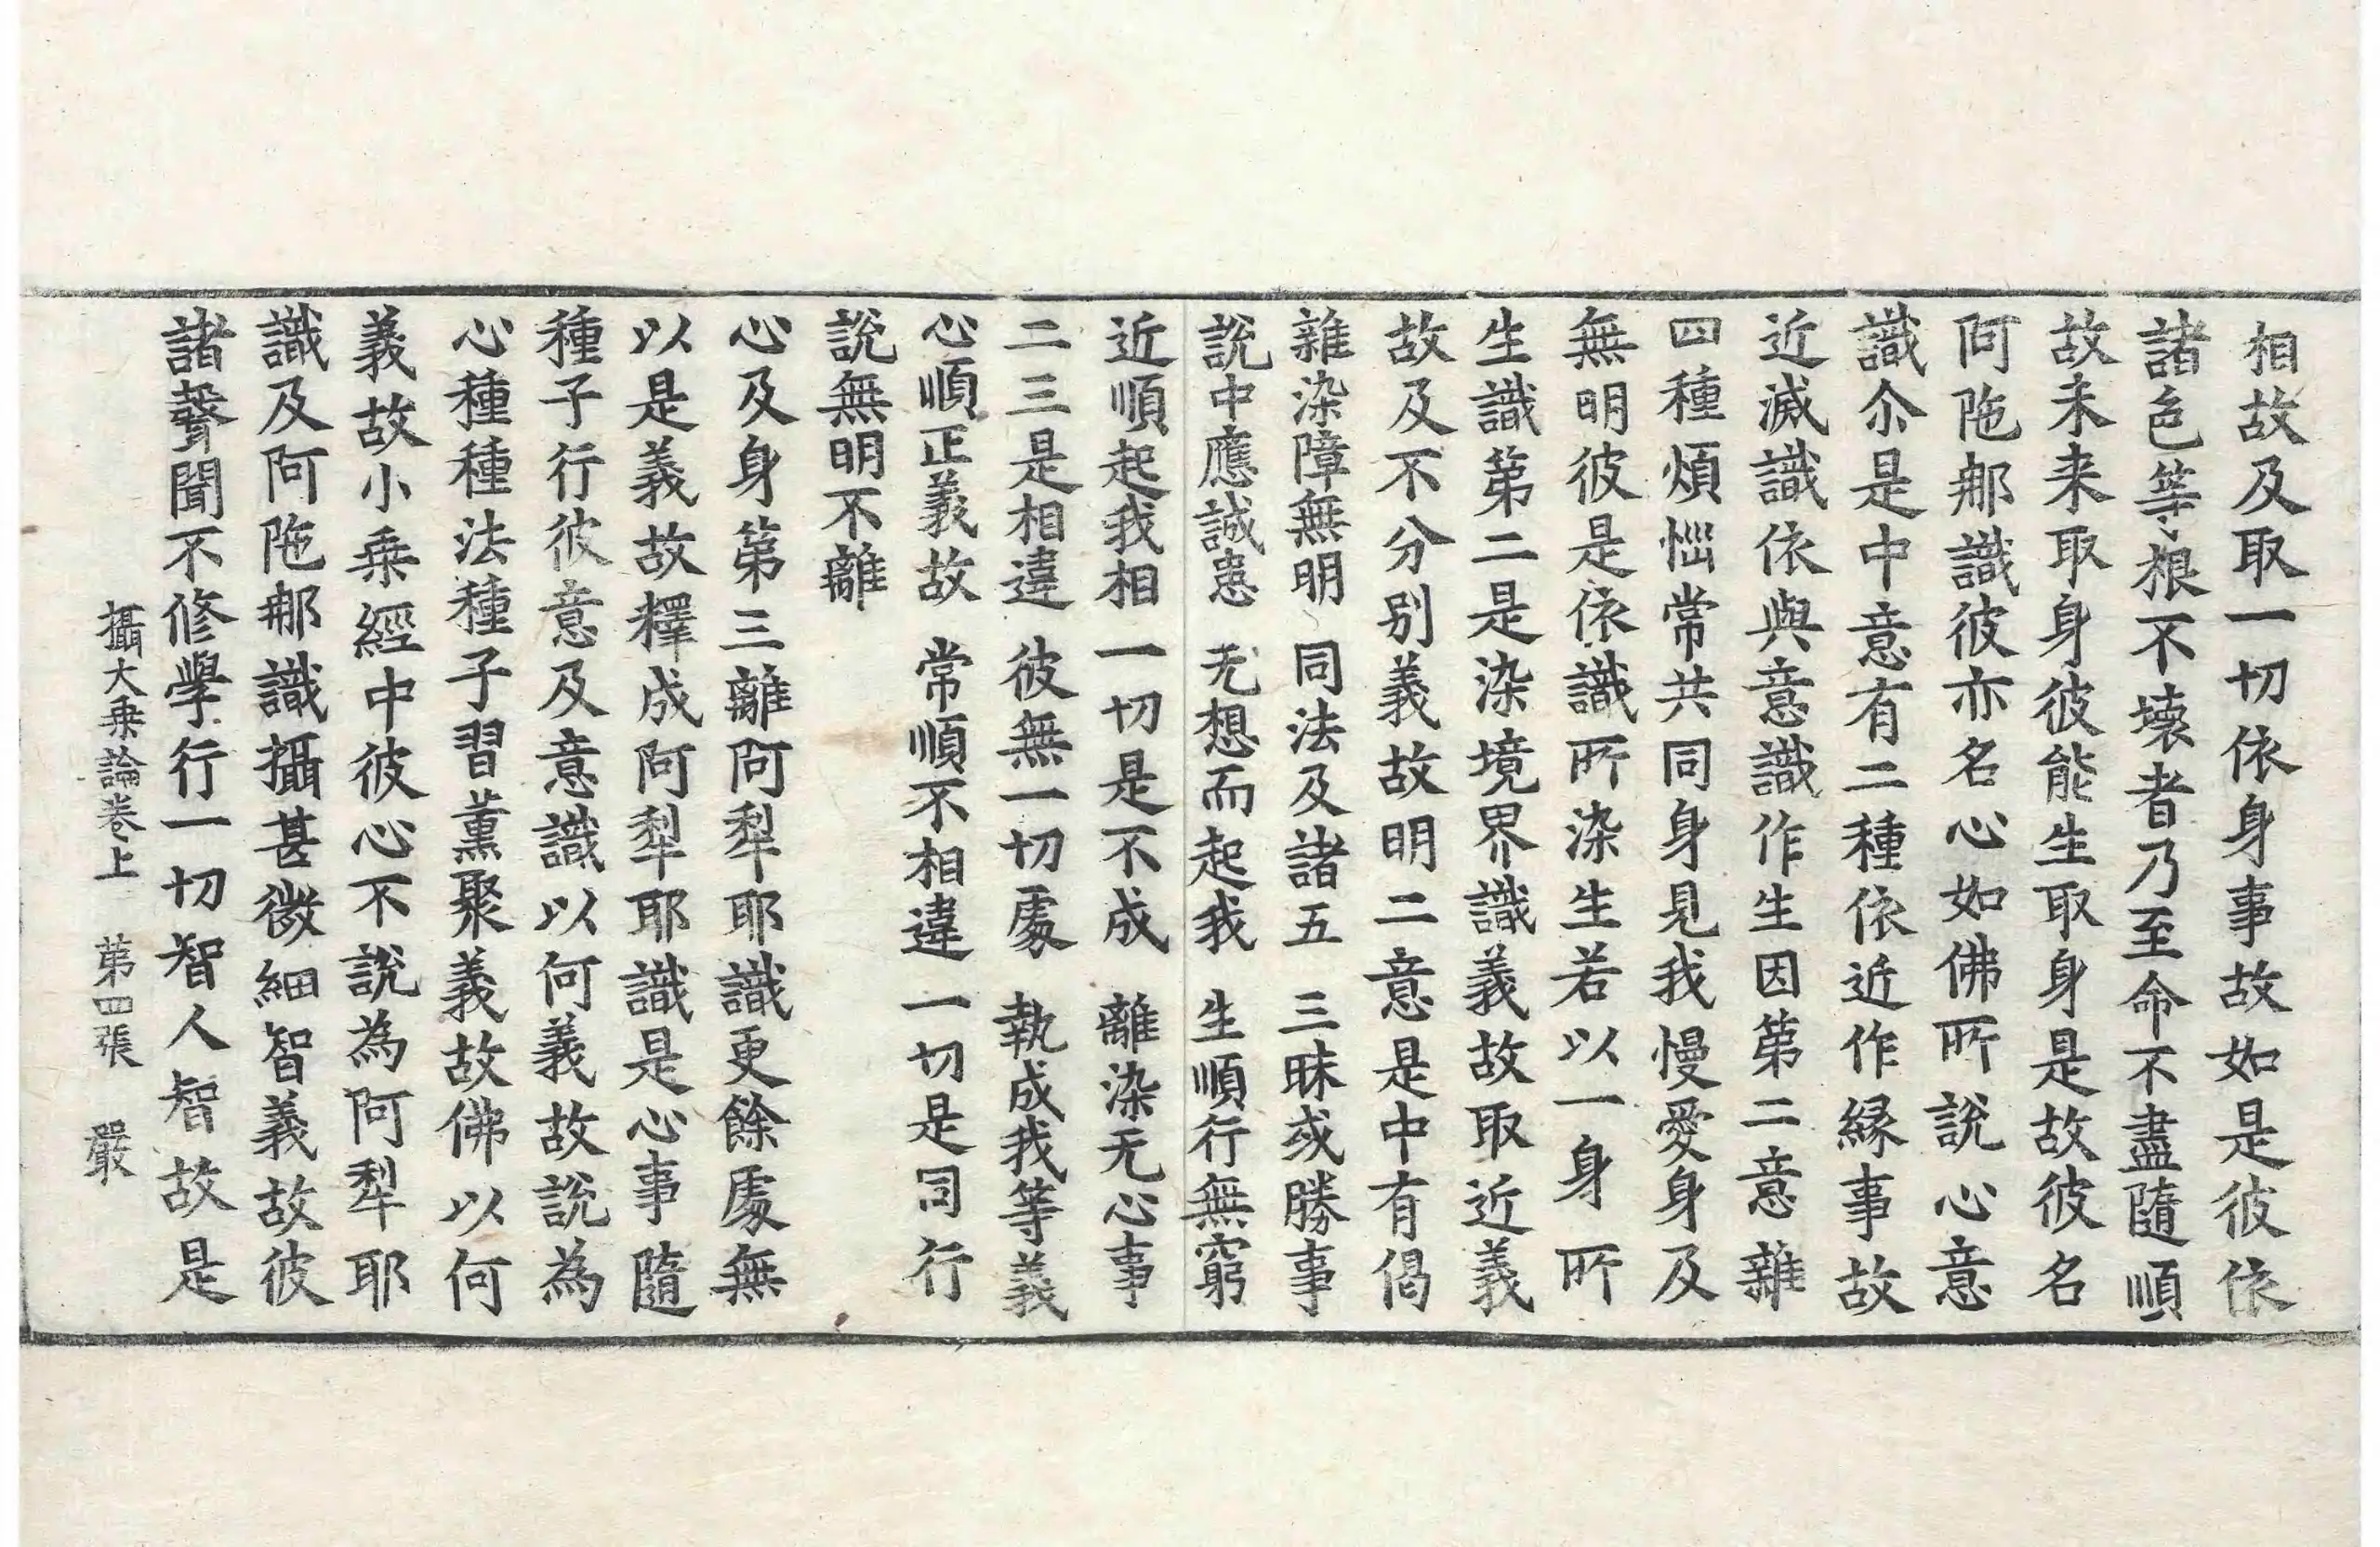 相故及取一切依身事故如是彼依
諸色等根不壞者乃至命不盡隨順
故未来取身彼能生取身是故彼名
阿陁那識彼亦名心如佛所說心意
識尒是中意有二種依近作縁事故
近滅識依與意識作生因第二意雜
四種煩惱常共同身見我慢愛身及
無明彼是依識所染生若以一身所
生識第二是染境界識義故取近義
故及不分别義故明二意是中有偈
雜染障無明　同法及諸五　三昧或勝事
說中應誠患　无想而起我　生順行無窮
近順起我相　一切是不成　離染无心事
二三是相違　彼無一切處　執成我等義
心順正義故　常順不相違　一切是同行
說無明不離
心及身第三離阿犁耶識更餘處無
以是義故釋成阿犁耶識是心事隨
種子行彼意及意識以何義故說為
心種種法種子習薰聚義故佛以何
義故小乗經中彼心不說為阿犁耶
識及阿陁那識攝甚微細智義故彼
諸聲聞不修學行一切智人智故是
攝大乗論卷上　第四張　嚴